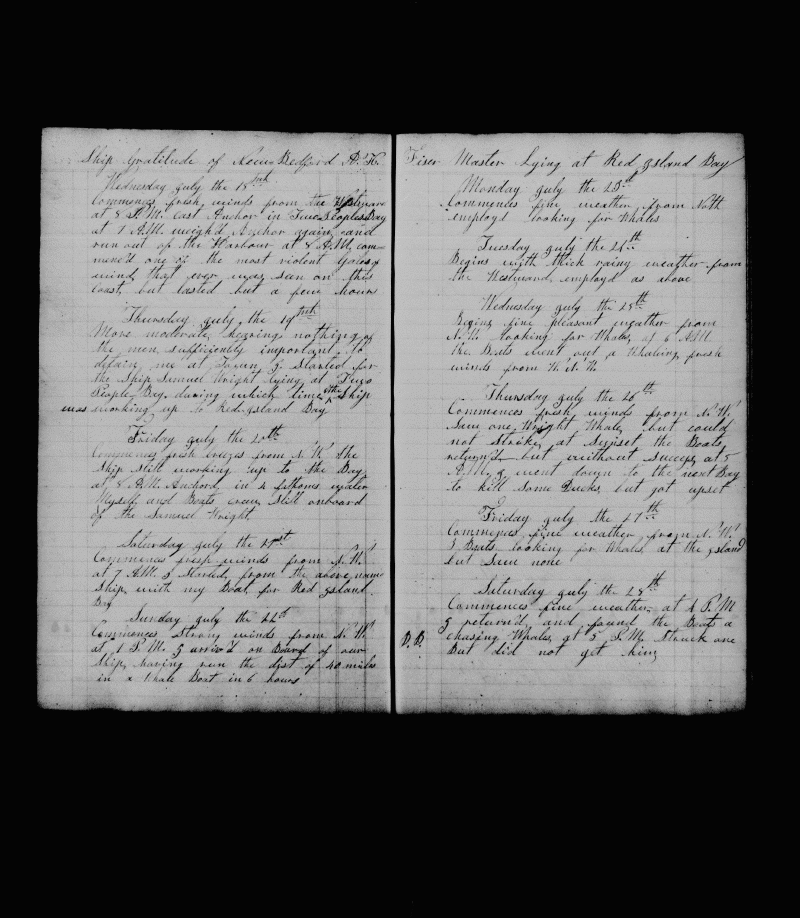 Ship Gratitude of New Bedford A. H.
Wednesday July the 18th
Commences fresh winds from the Westward
at 8 P.M. Cast Anchor in Two Peoples Bay
at 7 A.M. weigh'd Anchor again and
run out of the Harbour at 8 A.M. com-
menc'd one of the most violent Gales of
wind that ever was seen on this
Coast, but lasted but a few hours
Thursday July the 19th
More moderate, hearing nothing of
the men sufficiently important to
detain me at Town I started for
the Ship Samuel Wright lying at Two
People Bay, during which time the Ship
was working up to Red Island Bay
Friday July the 20th
Commences fresh breezes from N.W. the
Ship still working up to the Bay
at 8 A.M. Anchord in 4 fathoms water
Myself and Boats crew Still onboard
of the Samuel Wright
Saturday July the 21st
Commences fresh winds from N.W.
at 7 A.M. I Started from the above name
Ship, with my Boat for Red Island
Bay
Sunday July the 22d
Commences Strong winds from N.W.
at 1 P.M. I arriv'd on Board of our
Ship, having run the dist of 40 miles
in a Whale Boat in 6 hours
Fiser Master Lying at Red Island Bay
Monday July the 23d
Commences fine weather from North
employd looking for Whales
Tuesday July the 24th
Begins with thick rainy weather from
the Westward employd as above
Wednesday July the 25th
Begins fine pleasant weather from
N.W. looking for Whales, at 6 A.M.
the Boats went out a Whaling fresh
winds from W.N.W.
Thursday July the 26th
Commences fresh winds from N.W.
Saw one Wright Whale but could
not Strike, at Sunset the Boats
return'd but without success, at 5
A.M. I went down to the next Bay
to kill some Ducks, but got upset
Friday July the 27th
Commences fine weather from N.W.
3 Boats looking for Whales, at the Island
but Seen none
Saturday July the 28th
Commences fine weather at 4 P.M.
I return'd and found the Boats a
D.B. chasing Whales, at 5 P.M. Struck one
But did not get him